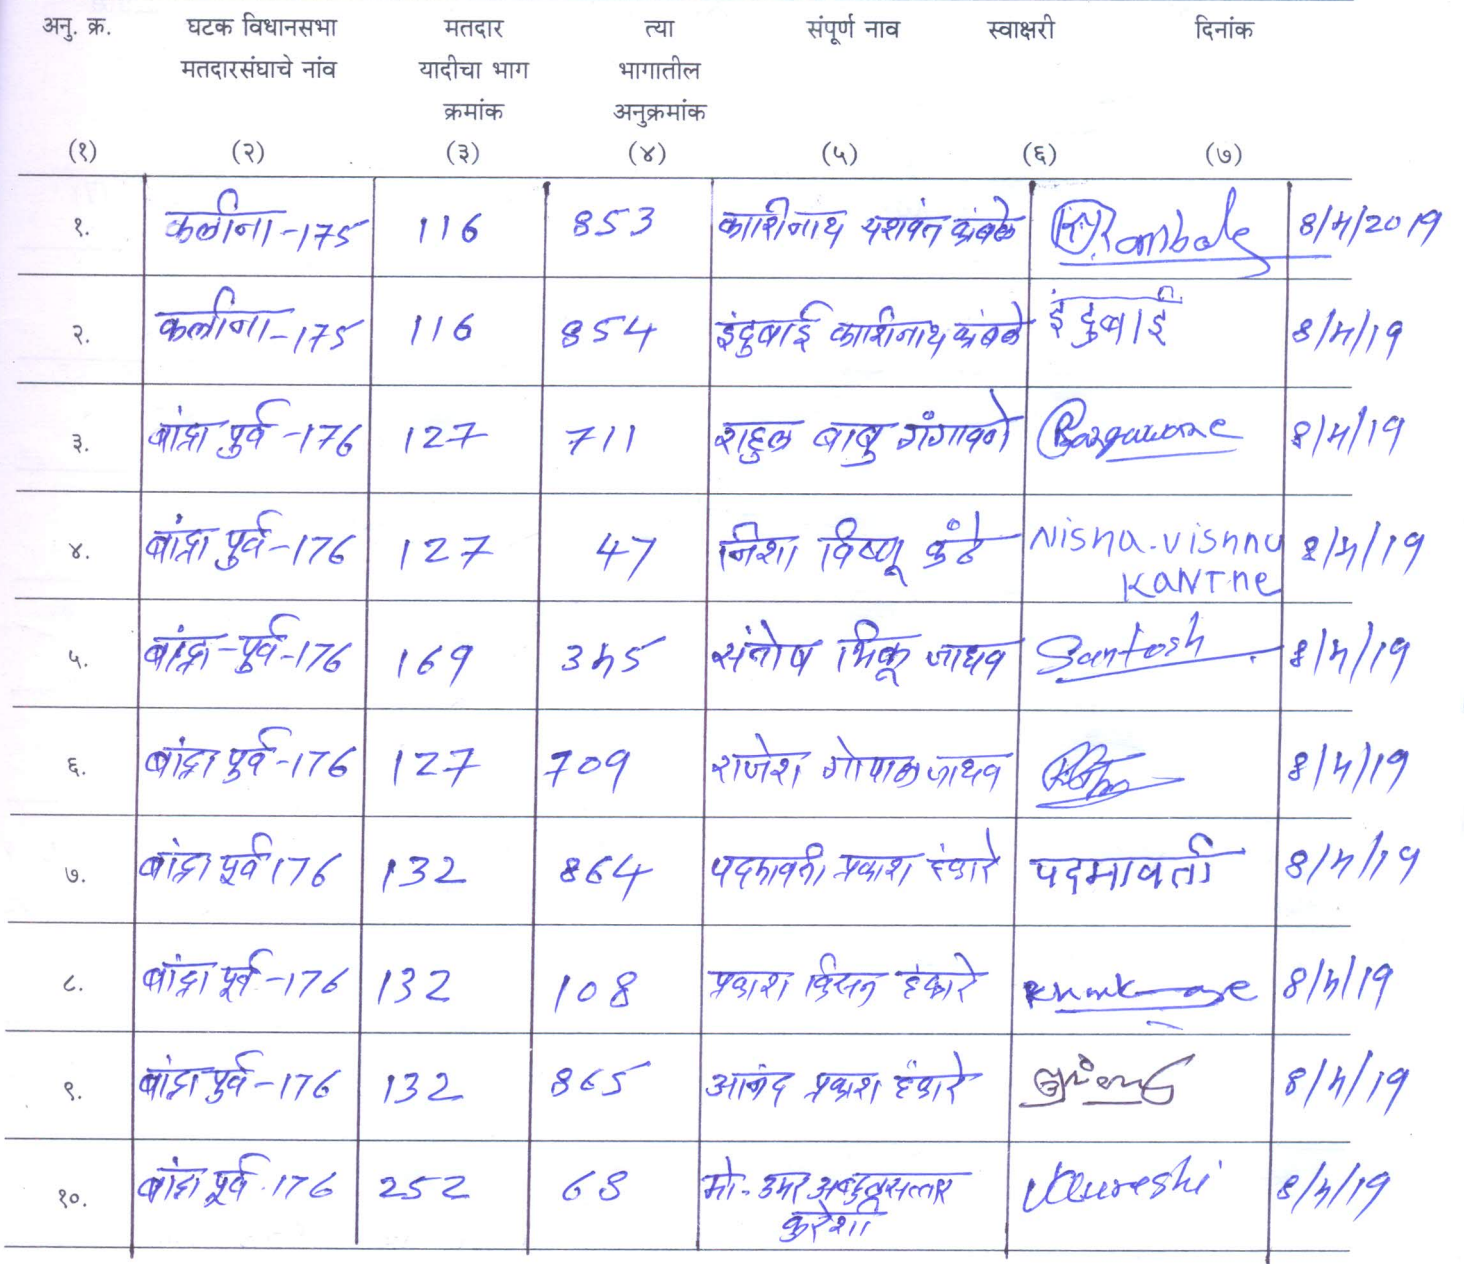 अनु. क्र. घटक विधानसभा मतदार त्या संपूर्ण नाव स्वाक्षरी दिनांक
मतदारसंघाचे नांव यादीचा भाग भागातील
क्रमांक अनुक्रमांक
(१) (२) (३) (४) (५) (६) (७)
१. कलीना-175 116 853 काशिनाथ यशवंत कांबळे Kamble 8/4/2019
२. कलीना-175 116 854 इंदुबाई काशिनाथ कांबळे इंदुबाई 8/4/19
३. बांद्रा पुर्व-176 127 711 राहुल बाबु गंगावणे Gangawane 8/4/19
४. बांद्रा पुर्व-176 127 47 निशा विष्णू कंठे Nisha-vishnu 8/4/19
KANThe
५. बांद्रा-पुर्व-176 169 345 संतोष भिकू जाधव Santosh 8/4/19
६. बांद्रा पुर्व-176 127 709 राजेश गोपाळ जाधव 8/4/19
७. बांद्रा पूर्व 176 132 864 पदमावती प्रकाश पदमावती 8/4/19
८. बांद्रा पूर्व-176 132 108 प्रकाश किसन 8/4/19
९. बांद्रा पुर्व-176 132 865 आनंद प्रकाश 8/4/19
१०. बांद्रा पूर्व-176 252 68 मो. उमर अब्दुलसत्तार Qureshi 8/4/19
कुरेशी